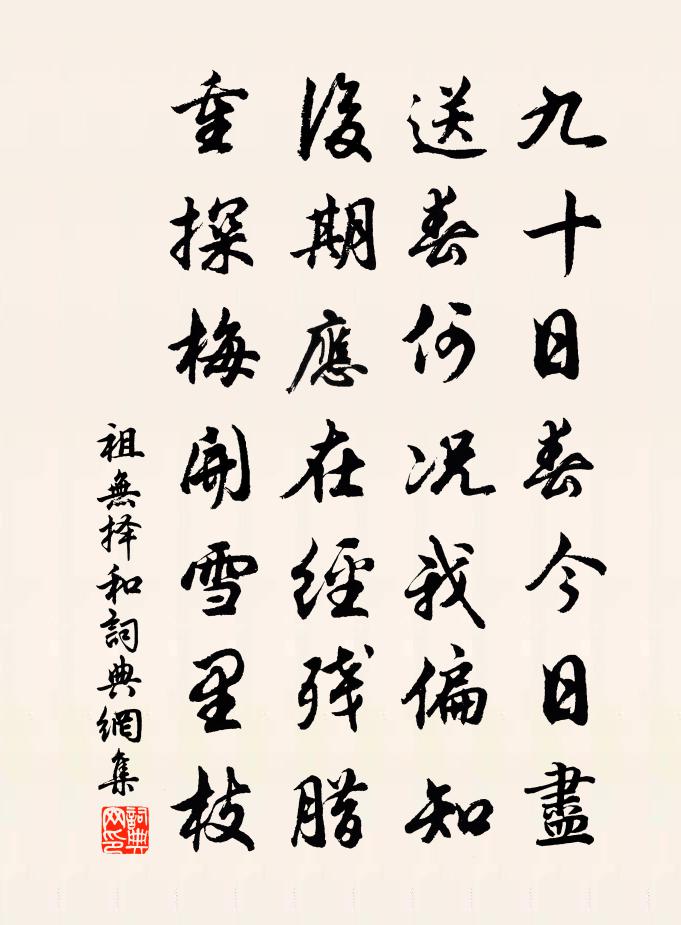 九十日春今日盡
送春何况我偏知
後期應在經残腊
重探梅開雪里枝
祖無择和詞典網集
詞典網印